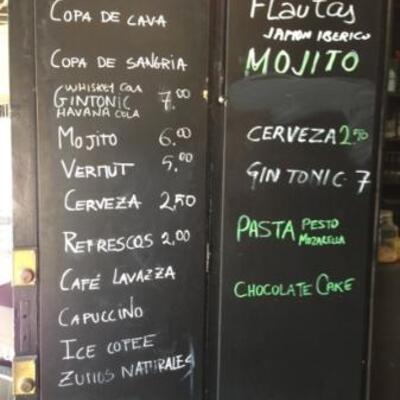 COPA DE CAVA
COPA DE SANGRIA
WHISKEY COLA
GINTONIC 7.00
HAVANA COLA
MOJITO 6.00
VERMUT 5.00
CERVEZA 2,50
REFRESCOS 2,00
CAFÉ LAVAZZA
CAPUCCINO
ICE COFEE
ZUMOS NATURALES
FLAUTAS
JAMON IBERICO
MOJITO
CERVEZA 2,50
GIN TONIC 7
PASTA PESTO
MOZARELLA
CHOCOLATE CAKE